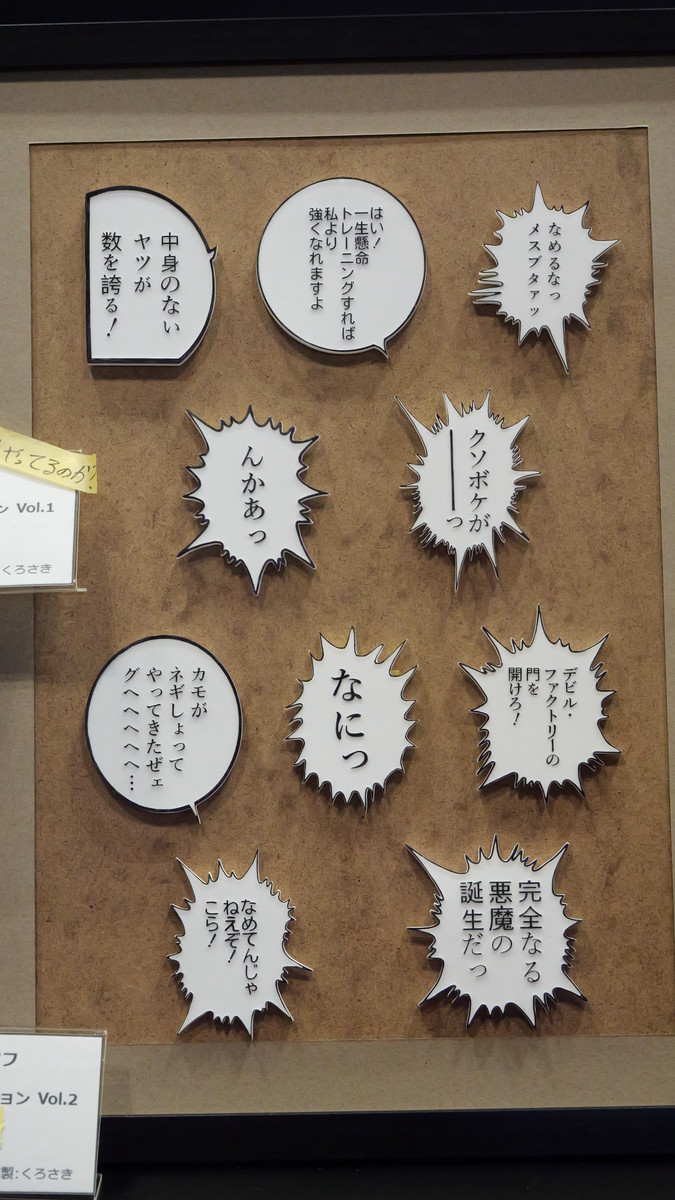 なめるなっ
メスブタァッ
はい！
一生懸命
トレーニングすれば
私より
強くなれますよ
中身のない
ヤツが
数を誇る！
クソボケが
――っ
んかあっ
デビル・
ファクトリーの
門を
開けろ！
なにっ
カモが
ネギしょって
やってきたぜェ
グヘヘヘヘヘ…
完全なる
悪魔の
誕生だっ
なめてんじゃ
ねえぞ！
こら！
やってるのか!
ン Vol.1
くろさき
フ
ョン Vol.2
製:くろさき